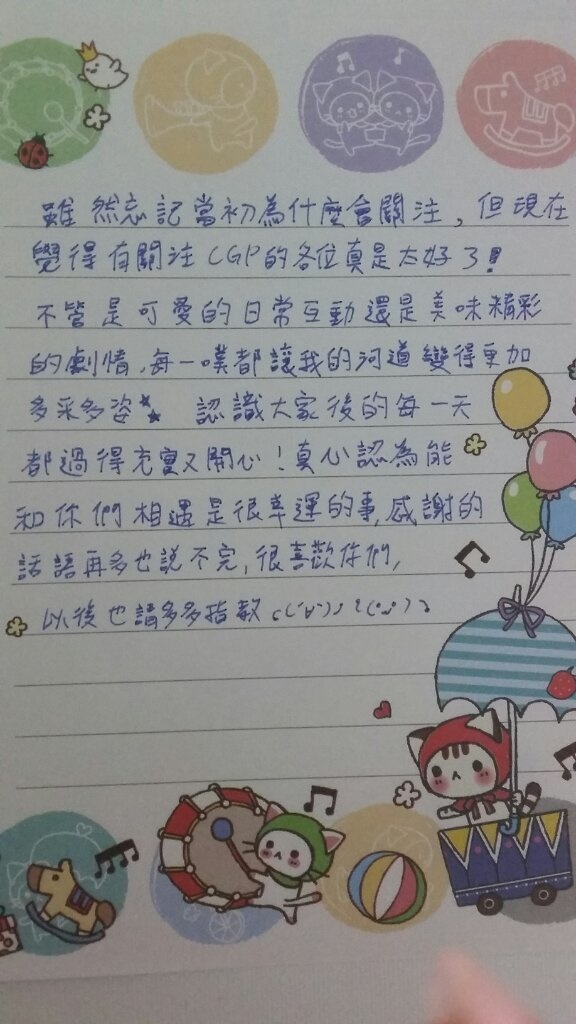 雖然忘記當初為什麼會關注，但現在
覺得有關注CGP的各位真是太好了！
不管是可愛的日常互動還是美味精彩
的劇情，每一噗都讓我的河道變得更加
多采多姿 認識大家後的每一天
都過得充實又開心！真心認為能
和你們相遇是很幸運的事，感謝的
話語再多也說不完，很喜歡你們，
以後也請多多指教